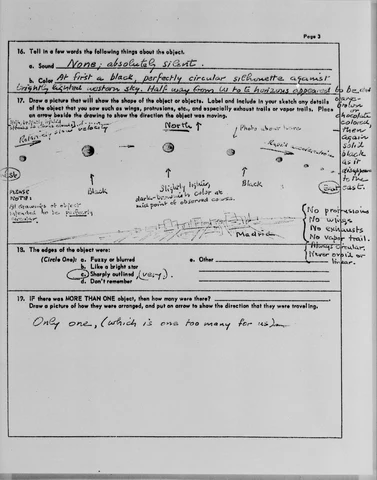 Page 3
16. Tell in a few words the following things about the object.
a. Sound None; absolutely silent.
b. Color At first a black, perfectly circular silhouette against
brightly lighted western sky. Half way from us to horizons appeared to be
17. Draw a picture that will show the shape of the object or objects. Label and include in your sketch any details
of the object that you saw such as wings, protrusions, etc., and especially exhaust trails or vapor trails. Place
an arrow beside the drawing to show the direction the object was moving.
brown or
chocolate
colored,
then
again
solid
black
as it
disappeared
to the
East.
velocity
North
Photo about here
Rapid acceleration
Black
Slightly lighter,
dark brownish color at
midpoint of observed course.
Black
PLEASE
NOTE:
All drawings of object
intended to be perfectly
circular.
Madrid
No protrusions
No wings
No exhausts
No vapor trail.
Always circular
Never ovoid or
linear.
18. The edges of the object were:
(Circle One): a. Fuzzy or blurred
b. Like a bright star
c. Sharply outlined (very.)
d. Don't remember
e. Other
19. IF there was MORE THAN ONE object, then how many were there?
Draw a picture of how they were arranged, and put an arrow to show the direction that they were traveling.
Only one, (which is one too many for us)